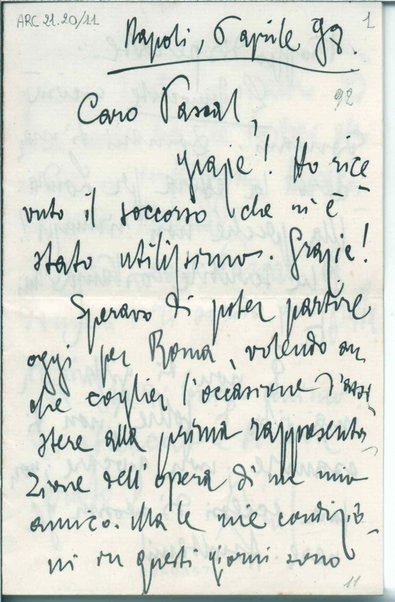 ARC 21.20/11
1
Napoli, 6 aprile 92.
92
Caro Pascal,
grazie! Ho rice
vuto il soccorso che m'è
stato utilissimo. Grazie!
Speravo di poter partire
oggi per Roma, volendo an
che coglier l'occasione d'assi
stere alla prima rappresenta
zione dell'opera di un mio
amico. Ma le mie condizio
ni in questi giorni sono
11